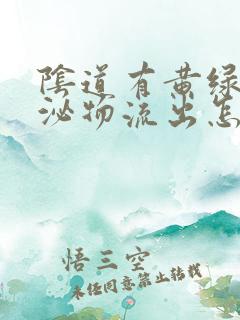 陰道有黄绿
泌物流出怎
悟三空
未经同意禁止转载